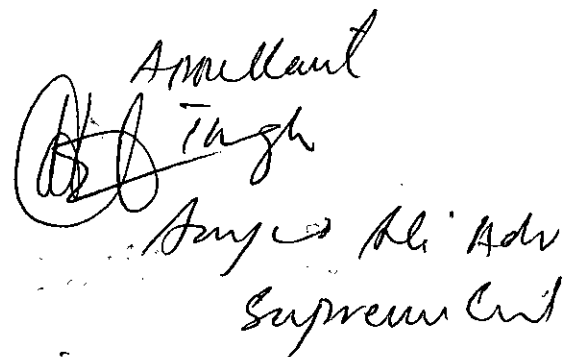 Appellant
Through
Ali Adv
Supreme Court